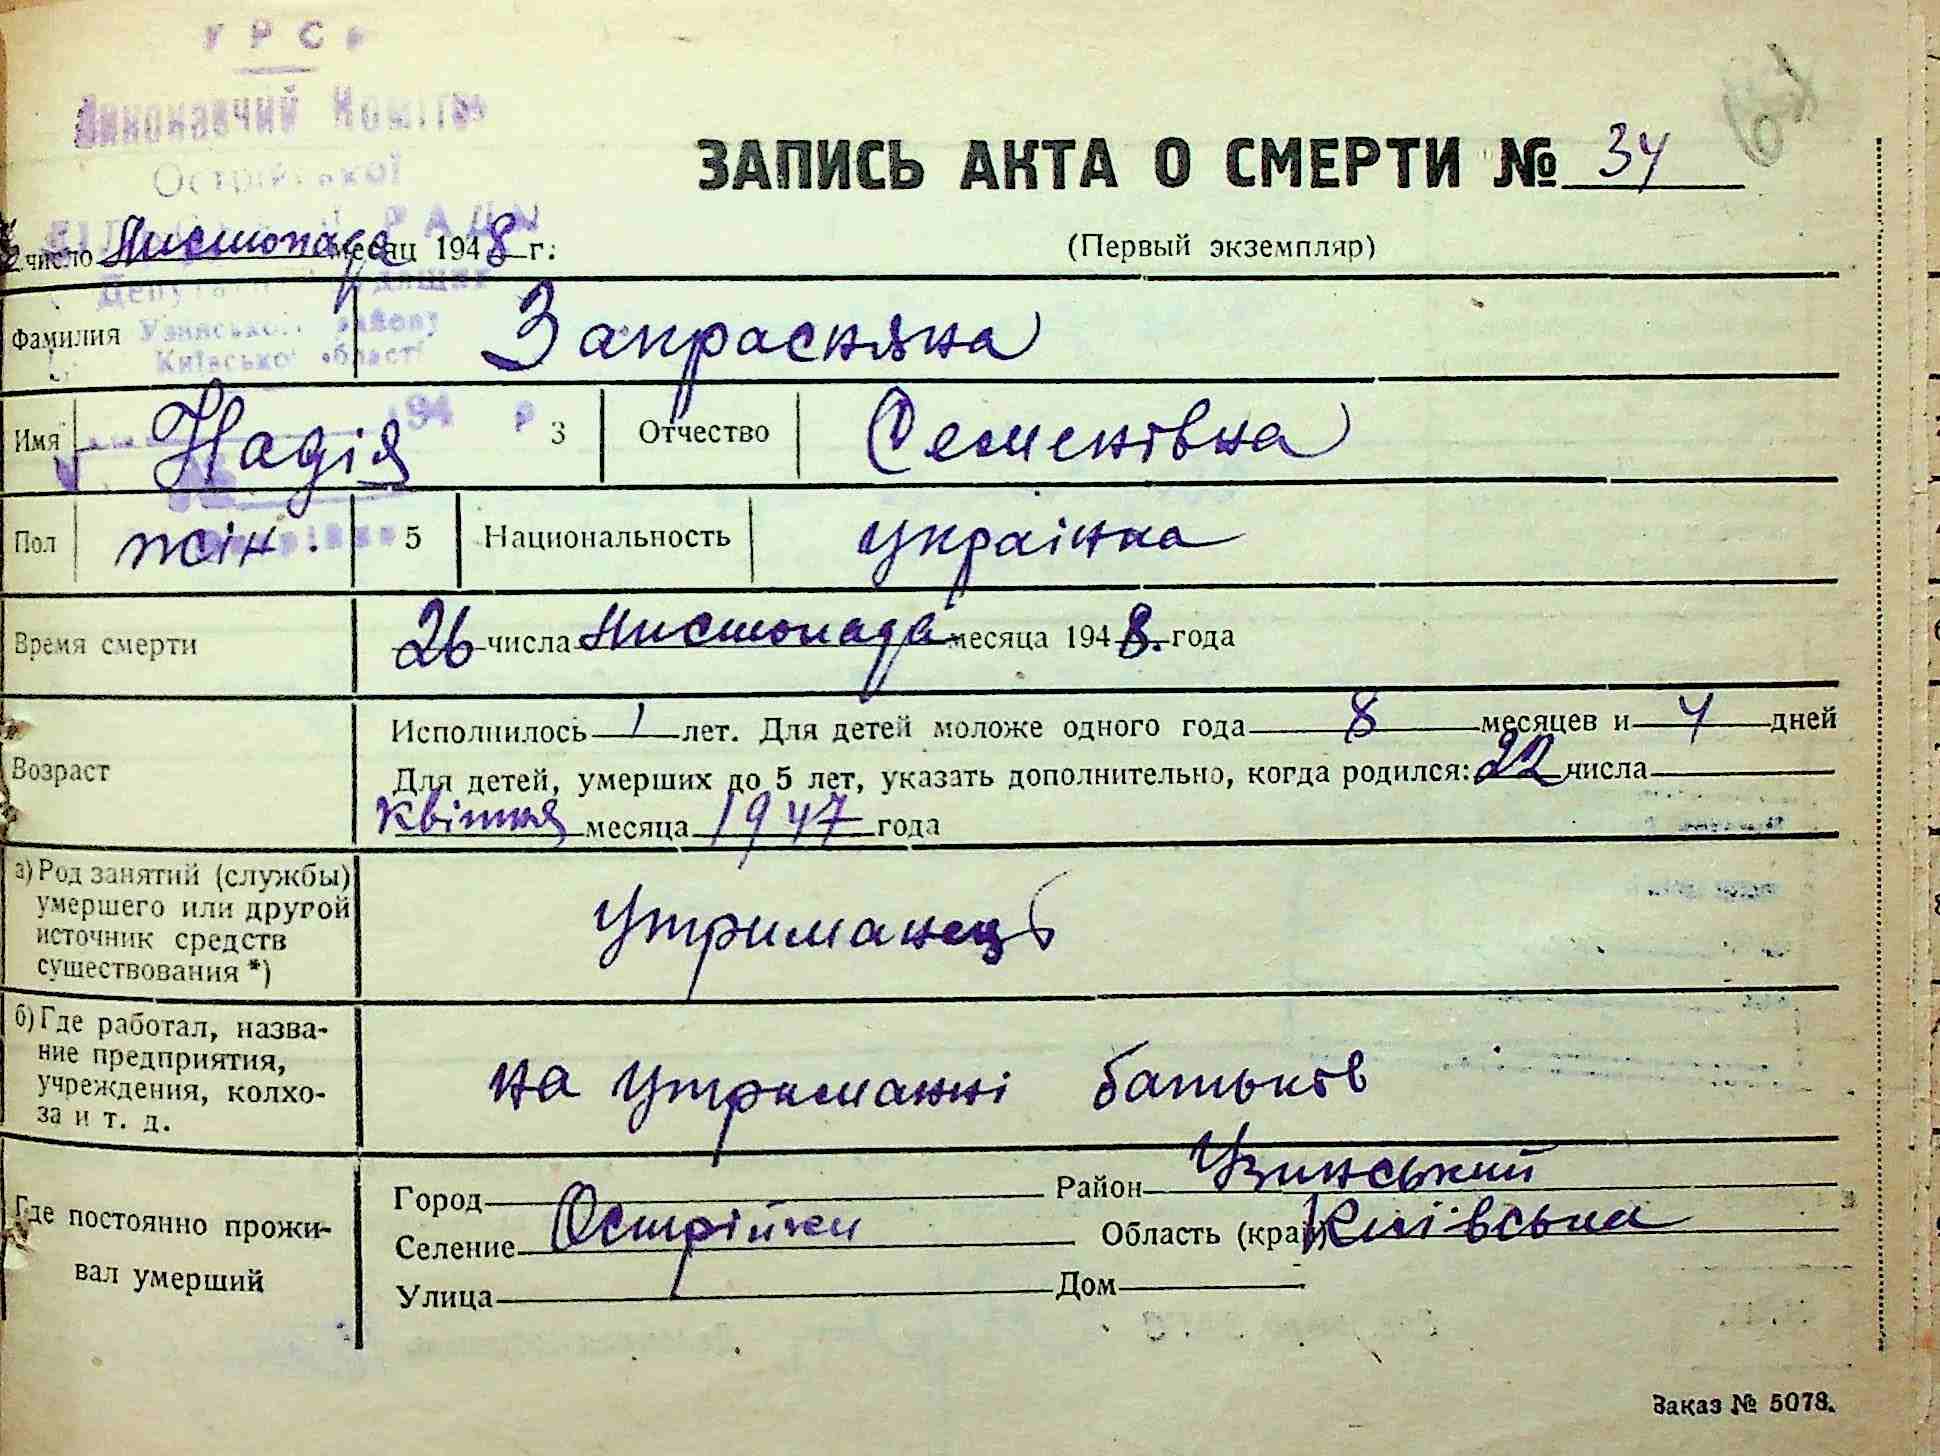 УРСР
Виконавчий Комітет
Острійської
РАДИ
Узинського району
Київської області
194 р
ЗАПИСЬ АКТА О СМЕРТИ № 34
(Первый экземпляр)
число Листопада месяц 1948 г.
Фамилия Закрасняна
Имя Надія 3 Отчество Семенівна
Пол жін. 5 Национальность українка
Время смерти 26 числа Листопада месяца 1948. года
Возраст Исполнилось 1 лет. Для детей моложе одного года 8 месяцев и 4 дней
Для детей, умерших до 5 лет, указать дополнительно, когда родился: 22 числа
квітня месяца 1947 года
а) Род занятий (службы)
умершего или другой
источник средств
существования *)
утриманець
б) Где работал, назва-
ние предприятия,
учреждения, колхо-
за и т. д.
на утриманні батьків
Где постоянно прожи-
вал умерший
Город Район Узинський
Селение Острійки Область (край) Київська
Улица Дом
Заказ № 5078.